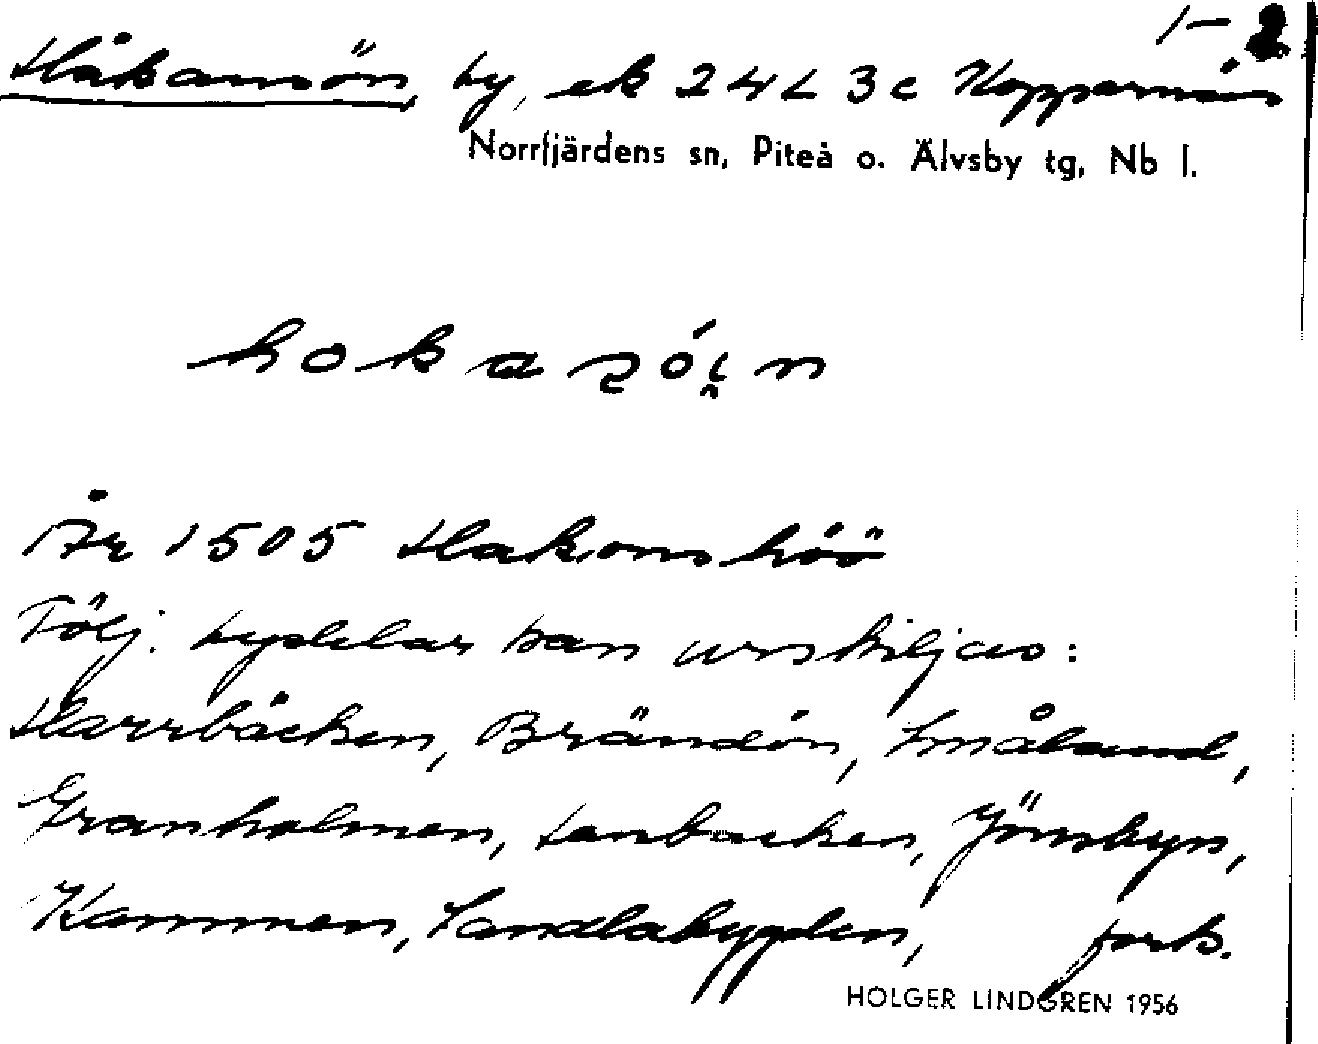 1–2
Håkansön, by, ek 24L 3c Kopparnäs
Norrfjärdens sn, Piteå o. Älvsby tg, Nb l.
hokasȯi̭n
År 1505 Hakonshöö
Följ. bydelar kan urskiljas:
Harrbäcken, Brändön, Småland,
Granholmen, Lanbacken, Jönsbyn,
Kammen, Sandlabygden, forts.
HOLGER LINDGREN 1956